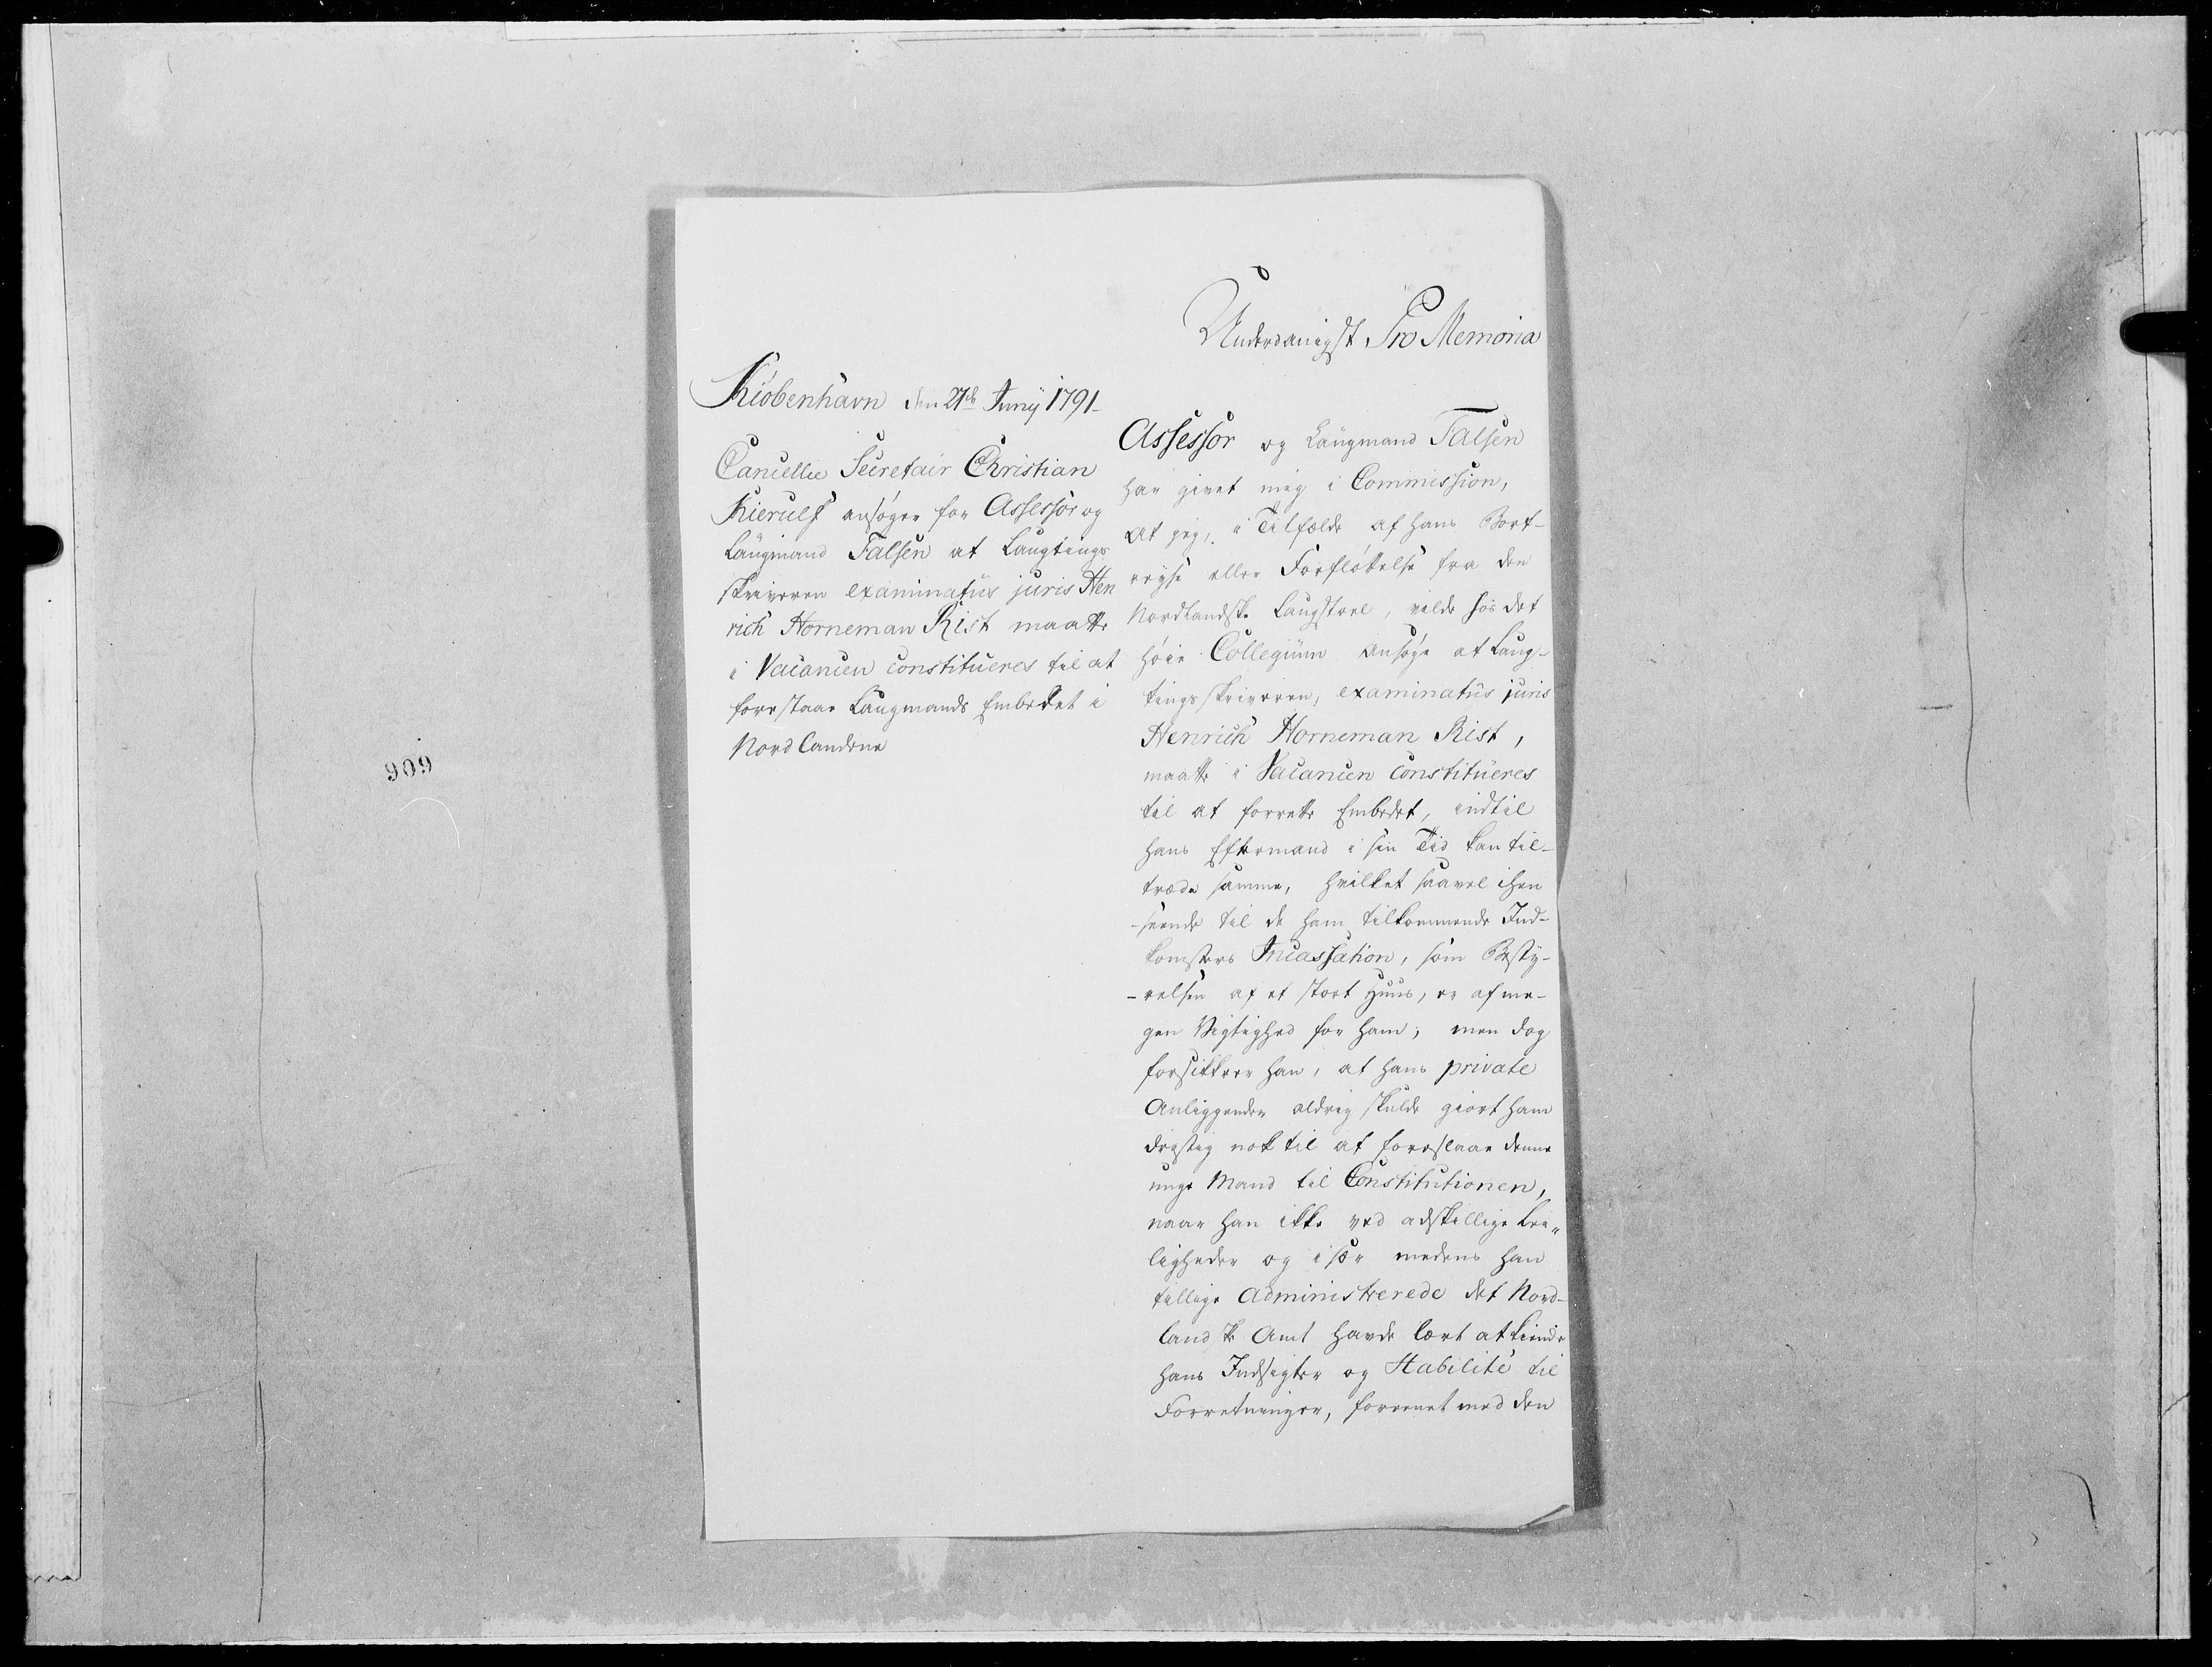 Underdanigst Pro Memoria
Kiøbenhavn den 27de Junij 1791_
Cancellie Secretair Christian
Kierulf ansøger for Assessor og
Laugmand Falsen at Laugtings
skriveren examinatus juris Hen
rich Horneman Rist maatte
i Vacancen constitueres til at
forestaae Laugmands Embedet i
Nordlandene
Assessor og Laugmand Falsen
har givet mig i Commission,
at jeg, i Tilfælde af hans Bort-
reyse eller Forfløttelse fra den
Nordlandske Laugstoel, vilde hos det
høie Collegium ansøge at Laug-
tingsskriveren, examinatus juris
Henrich Horneman Rist,
maatte i Vacancen constitueres
til at forrette Embedet, indtil
hans Eftermand i sin Tid kan til-
træde samme, hvilket saavel ihen
-seende til de ham tilkommende Ind-
komsters Incassation, som Besty-
-relsen af et stort Huus, er af me-
gen Vigtighed for ham; men dog
forsikkrer han, at hans private
Anliggender aldrig skulde giort ham
dristig nok til at foreslaae denne
unge Mand til Constitutionen,
naar han ikke ved adskillige Lei-
ligheder og især medens han
tillige administrerede det Nord-
landske Amt havde lært at kiende
hans Indsigter og Habilité til
Forretninger, foreenet med den
909